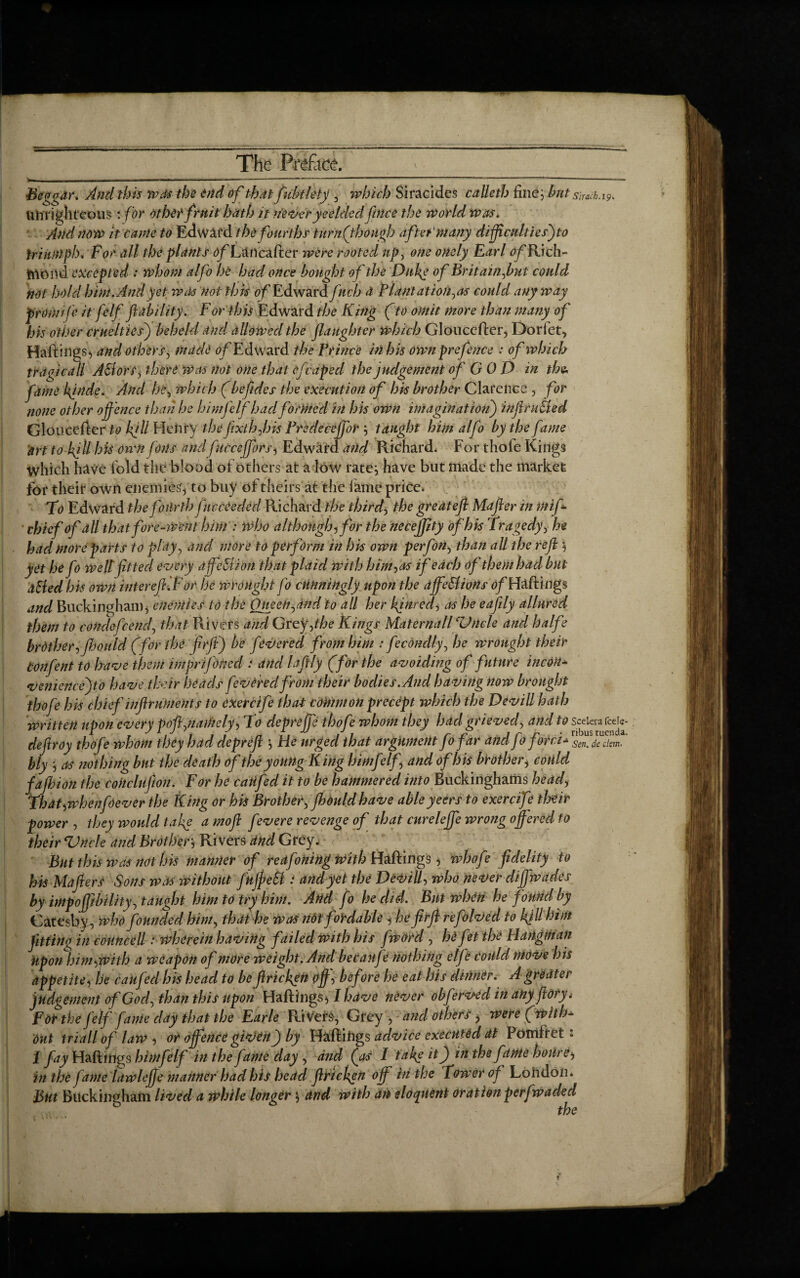 The Preface.
Beggar. And this was the end of that ſubtlety, which Siracides calleth fine; but Sirach.19.
unrighteous: for other fruit hath it never yeelded ſince the world was.
And now it came to Edward the fourths turn(though after many difficulties)to
triumph. For all the plants of Lancaſter were rooted up, one onely Earl of Rich-
mond excepted: whom alſo he had once bought of the Duke of Britain,but could
not hold him.And yet was not this of Edward ſuch a Plantation,as could any way
promiſe it ſelf ſtability. For this Edward the King (to omit more than many of
his other cruelties) beheld and allowed the ſlaughter which Glouceſter, Dorſet,
Haſtings, and others, made of Edward the Prince in his own preſence: of which
tragicall Actors, there was not one that eſcaped the judgement of GOD in the
ſame kinde. And he, which (beſides the execution of his brother Clarence, for
none other offence than he himſelf had formed in his own imagination) inſtructed
Glouceſter to kill Henry the ſixth,his Predeceſſor; taught him alſo by the ſame
art to kill his own ſons and ſucceſſors, Edward and Richard. For thoſe Kings
which have ſold the blood of others at a low rate; have but made the market
for their own enemies, to buy of theirs at the ſame price.
To Edward the fourth ſucceeded Richard the third, the greateſt Maſter in miſ-
chief of all that fore-went him: who although, for the neceſſity of his Tragedy, he
had more parts to play, and more to perform in his own perſon, than all the reſt;
yet he ſo well fitted every affection that plaid with him,as if each of them had but
acted his own intereſt.For he wrought ſo cunningly upon the affections of Haſtings
and Buckingham, enemies to the Queen,and to all her kinred, as he eaſily allured
them to condeſcend, that Rivers and Grey,the Kings Maternall Uncle and halfe
brother, ſhould (for the firſt) be ſevered from him: ſecondly, he wrought their
conſent to have them impriſoned: and laſtly (for the avoiding of future incon-
venience)to have their heads ſevered from their bodies.And having now brought
thoſe his chief inſtruments to exerciſe that common precept which the Devill hath
written upon every poſt,namely, To depreſſe thoſe whom they had grieved, and to Scelera ſcele-
deſtroy thoſe whom they had depreſt; He urged that argument ſo far and ſo forci- ribus tuenda.
bly; as nothing but the death of the young King himſelf, and of his brother, could Sen. de clem.
faſhion the concluſion. For he cauſed it to be hammered into Buckinghams head,
That,whenſoever the King or his Brother, ſhould have able yeers to exerciſe their
power, they would take a moſt ſevere revenge of that cureleſſe wrong offered to
their Uncle and Brother; Rivers and Grey.
But this was not his manner of reaſoning with Haſtings, whoſe fidelity to
his Maſters Sons was without ſuſpect: and yet the Devill, who never diſſwades
by impoſſibility, taught him to try him. And ſo he did. But when he found by
Catesby, who founded him, that he was not fordable; he firſt reſolved to kill him
ſitting in councell: wherein having failed with his ſword, he ſet the Hangman
upon him,with a weapon of more weight. And becauſe nothing elſe could move his
appetite, he cauſed his head to be ſtricken off, before he eat his dinner. A greater
judgement of God, than this upon Haſtings, I have never obſerved in any ſtory.
For the ſelf ſame day that the Earle Rivers, Grey, and others, were (with-
out triall of law, or offence given) by Haſtings advice executed at Pomfret:
I ſay Haſtings himſelf in the ſame day, and (as I take it) in the ſame houre,
in the ſame lawleſſe manner had his head ſtricken off in the Tower of London.
But Buckingham lived a while longer; and with an eloquent oration perſwaded
the